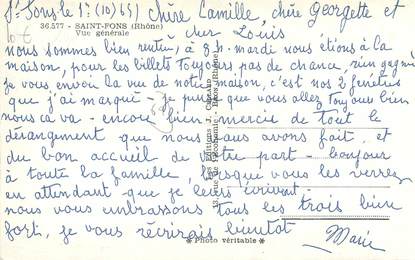 St Fons le 1 (10/65) Chère Camille, chère Georgette et
cher Louis
36.577 - SAINT-FONS (Rhône)
Vue générale
nous sommes bien rentrés, à 8h - mardi nous étions à la
maison, pour les billets toujours pas de chance, rien gagné
je vous envoi la vue de notre maison, c'est nos 2 fenêtres
que j'ai masqué - je pense que vous allez toujours bien
nous ça va - encore bien merci de tout le
dérangement que nous vous avons fait, et
du bon accueil de votre part - bonjour
à toute la famille, lorsque vous les verrez
en attendant que je leurs écrivent -
nous vous embrassons tous les trois bien
fort, je vous récrirais bientôt
Marie
Les Editions J.
13, Rue de l'Economie - Bron (Rhône)
* Photo véritable *